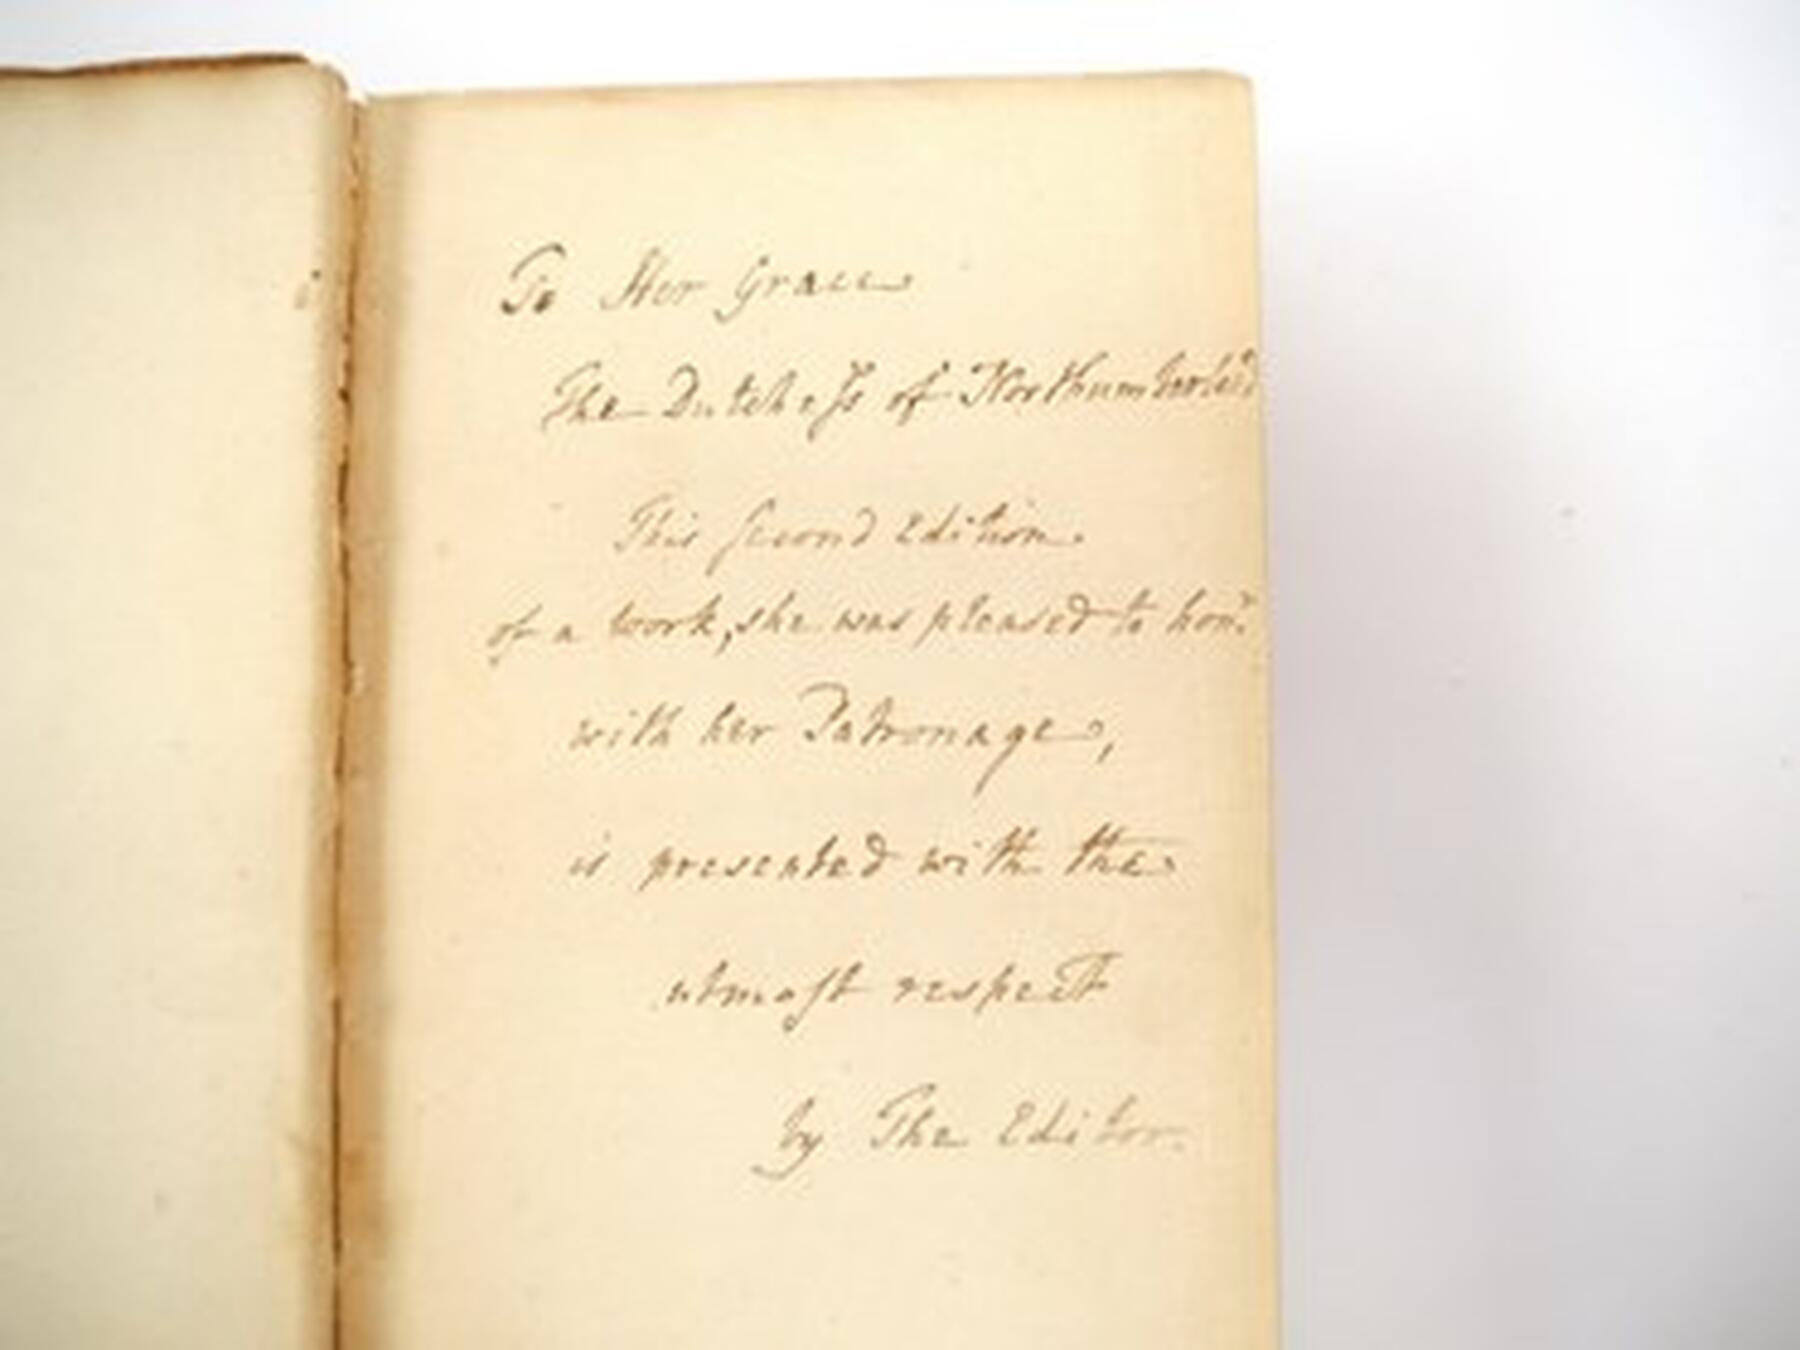 To Her Grace
The Dutcheſs of Northumberl.d
This ſecond Edition.
of a work, she was pleased to hon.r
with her Patronage,
is presented with the
utmoſt respect
by The Editor.